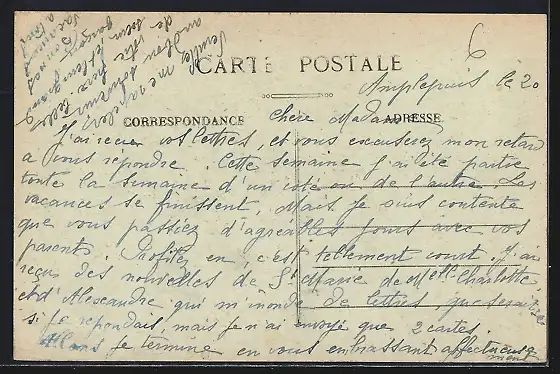 6
CARTE POSTALE
Amplepuis le 20
CORRESPONDANCE
ADRESSE
Chère Madame
J'ai reçu vos lettres, et vous excuserez mon retard
à vous répondre. Cette semaine j'ai été partie
toute la semaine d'un coté ou de l'autre. Les
vacances se finissent, Mais je suis contente
que vous passiez d'agreables jours avec vos
parents. Profitez en c'est tellement court. J'ai
reçu des nouvelles de St Marie de Melle Charlotte
et d'Alexandre qui m'inonde de lettres que serait
si je repondais, mais je n'ai envoyé que 2 cartes.
Allons je termine en vous embrassant affectueuse
ment
Veuillez me rappeler
au bon souvenir
de votre